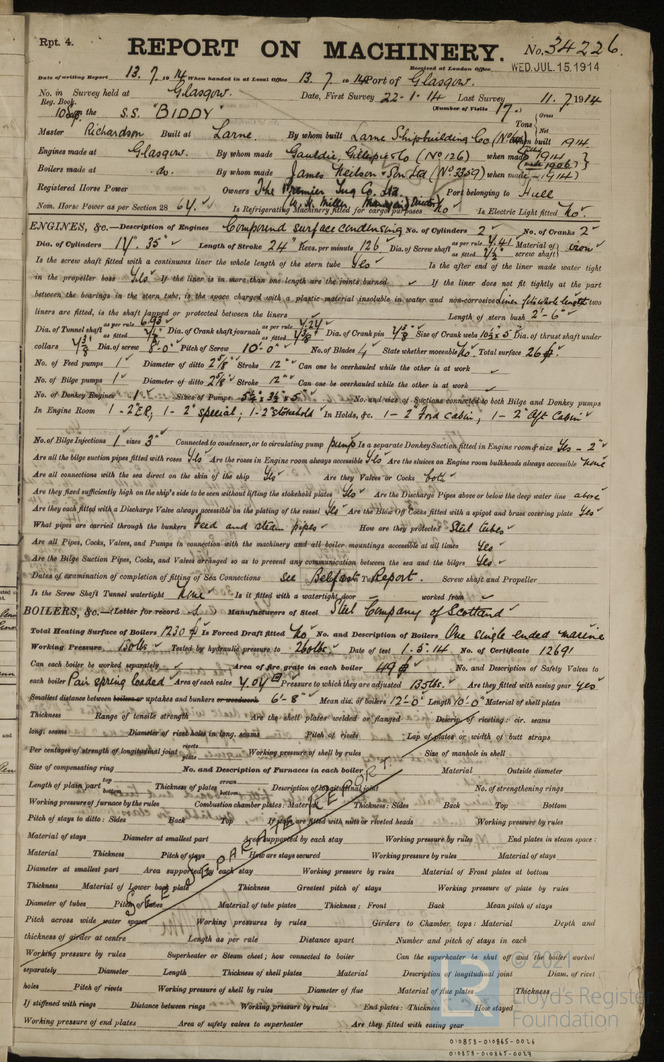 Rpt. 4.
REPORT ON MACHINERY. No. 34226.
Received at London Office WED. JUL. 15. 1914
Date of writing Report 13. 7. 1914 When handed in at Local Office 13. 7. 1914 Port of Glasgow.
No. in Survey held at Glasgow. Date, First Survey 22-1-14 Last Survey 11. 7. 1914
Reg. Book. (Number of Visits 17)
on the S.S. "BIDDY" Tons Gross Net
Master Richardson Built at Larne. By whom built Larne Shipbuilding Co When built 1914
Engines made at Glasgow. By whom made Gauldie, Gillespie & Co (No 126) when made 1914
Boilers made at do. By whom made James Neilson & Son Ltd (No 3359) when made 1914
Registered Horse Power Owners The Premier Tug Co. Ltd. Port belonging to Hull
Nom. Horse Power as per Section 28 64. Is Refrigerating Machinery fitted for cargo purposes No Is Electric Light fitted No.
ENGINES, &c.—Description of Engines Compound surface condensing No. of Cylinders 2 No. of Cranks 2
Dia. of Cylinders 17" 35" Length of Stroke 24" Revs. per minute 126 Dia. of Screw shaft as per rule 7.41 as fitted 7½ Material of screw shaft iron
Is the screw shaft fitted with a continuous liner the whole length of the stern tube Yes Is the after end of the liner made water tight
in the propeller boss Yes If the liner is in more than one length are the joints burned If the liner does not fit tightly at the part
between the bearings in the stern tube, is the space charged with a plastic material insoluble in water and non-corrosive liner fits whole length If two
liners are fitted, is the shaft lapped or protected between the liners Length of stern bush 2'-6"
Dia. of Tunnel shaft as per rule 6.93 as fitted Dia. of Crank shaft journals as per rule 7.27 as fitted Dia. of Crank pin Size of Crank webs Dia. of thrust shaft under
collars Dia. of screw 8'-0" Pitch of Screw 10'-0" No. of Blades 4 State whether moveable No Total surface 26
No. of Feed pumps 1 Diameter of ditto Stroke 12" Can one be overhauled while the other is at work
No. of Bilge pumps 1 Diameter of ditto Stroke 12" Can one be overhauled while the other is at work
No. of Donkey Engines 1 Sizes of Pumps No. and size of Suctions connected to both Bilge and Donkey pumps
In Engine Room 1-2" ER, 1-2" special, 1-2" stokehold In Holds, &c. 1-2" Ford cabin, 1-2" Aft Cabin
No. of Bilge Injections 1 sizes 3" Connected to condenser, or to circulating pump pump Is a separate Donkey Suction fitted in Engine room & size Yes - 2"
Are all the bilge suction pipes fitted with roses Yes Are the roses in Engine room always accessible Yes Are the sluices on Engine room bulkheads always accessible None
Are all connections with the sea direct on the skin of the ship Yes Are they Valves or Cocks both
Are they fixed sufficiently high on the ship's side to be seen without lifting the stokehold plates Yes Are the Discharge Pipes above or below the deep water line above
Are they each fitted with a Discharge Valve always accessible on the plating of the vessel Yes Are the Blow Off Cocks fitted with a spigot and brass covering plate Yes
What pipes are carried through the bunkers Feed and steam pipes How are they protected Steel tubes
Are all Pipes, Cocks, Valves, and Pumps in connection with the machinery and all boiler mountings accessible at all times Yes
Are the Bilge Suction Pipes, Cocks, and Valves arranged so as to prevent any communication between the sea and the bilges Yes
Dates of examination of completion of fitting of Sea Connections see Belfast Report. Screw shaft and Propeller
Is the Screw Shaft Tunnel watertight None Is it fitted with a watertight door worked from
BOILERS, &c.—(Letter for record S) Manufacturers of Steel Steel Company of Scotland
Total Heating Surface of Boilers 1230 Is Forced Draft fitted No No. and Description of Boilers One single ended marine
Working Pressure 130 lbs Tested by hydraulic pressure to 260 lbs Date of test 1.5.14 No. of Certificate 12691
Can each boiler be worked separately Area of fire grate in each boiler 49 No. and Description of Safety Valves to
each boiler Pair spring loaded Area of each valve 7.07 Pressure to which they are adjusted 135 lbs. Are they fitted with easing gear yes
Smallest distance between boilers or uptakes and bunkers or woodwork 6'-8" Mean dia. of boilers 12'-0" Length 10'-0" Material of shell plates
Thickness Range of tensile strength Are the shell plates welded or flanged Descrip. of riveting: cir. seams
long. seams Diameter of rivet holes in long. seams Pitch of rivets Lap of plates or width of butt straps
Per centages of strength of longitudinal joint rivets plate Working pressure of shell by rules Size of manhole in shell
Size of compensating ring No. and Description of Furnaces in each boiler Material Outside diameter
Length of plain part top bottom Thickness of plates crown bottom Description of longitudinal joint No. of strengthening rings
Working pressure of furnace by the rules Combustion chamber plates: Material Thickness: Sides Back Top Bottom
Pitch of stays to ditto: Sides Back Top If stays are fitted with nuts or riveted heads Working pressure by rules
Material of stays Diameter at smallest part Area supported by each stay Working pressure by rules End plates in steam space:
Material Thickness Pitch of stays How are stays secured Working pressure by rules Material of stays
Diameter at smallest part Area supported by each stay Working pressure by rules Material of Front plates at bottom
Thickness Material of Lower back plate Thickness Greatest pitch of stays Working pressure of plate by rules
Diameter of tubes Pitch of tubes Material of tube plates Thickness: Front Back Mean pitch of stays
Pitch across wide water spaces Working pressures by rules Girders to Chamber tops: Material Depth and
thickness of girder at centre Length as per rule Distance apart Number and pitch of stays in each
Working pressure by rules Superheater or Steam chest; how connected to boiler Can the superheater be shut off and the boiler worked
separately Diameter Length Thickness of shell plates Material Description of longitudinal joint Diam. of rivet
holes Pitch of rivets Working pressure of shell by rules Diameter of flue Material of flue plates Thickness
If stiffened with rings Distance between rings Working pressure by rules End plates: Thickness How stayed
Working pressure of end plates Area of safety valves to superheater Are they fitted with easing gear
SEE SEPARATE REPORT.
© 2021
Lloyd's Register
Foundation
010853-010865-0026
010853-010865-0027